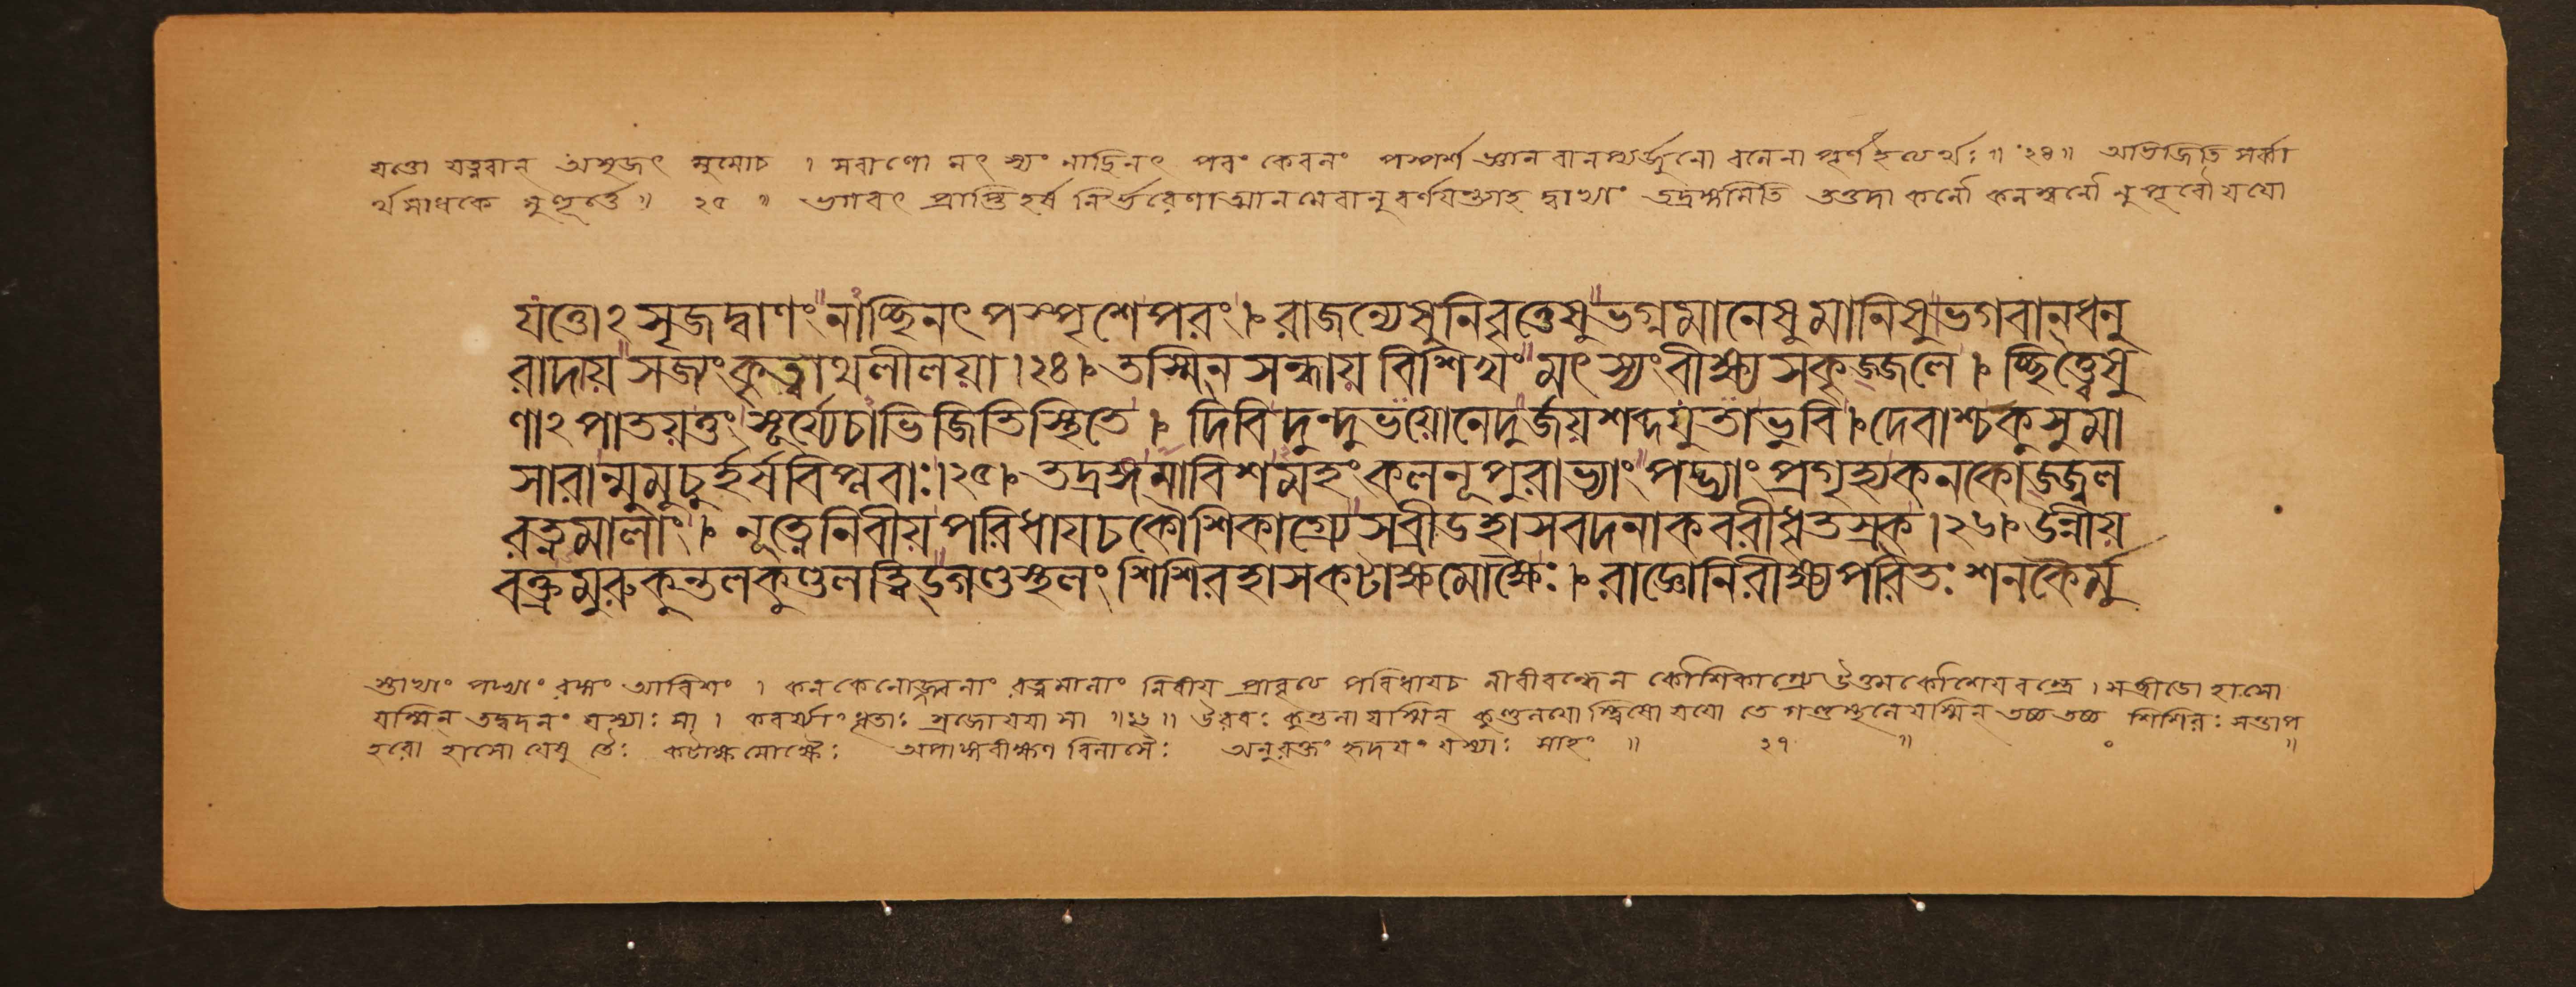 যত্তো যত্নবান অসৃজৎ মুমোচ । সবাণো মৎস্যং নাচ্ছিনৎ পরং কেবলং পস্পর্শ জ্ঞানবানপ্যর্জুনো বলেনা পূর্ণ ইত্যর্থঃ ॥ ২৪ ॥ অভিজিতি সর্ব্বা
র্থসাধকে মুহূর্ত্তে ॥ ২৫ ॥ ভগবৎ প্রাপ্তিহর্ষ নির্ভরেণাত্মানমেবানুবর্ণয়ন্ত্যাহ দ্বাভ্যাং তদ্রঙ্গমিতি তত্তদা কলৌ কলস্বনৌ নুপূরৌ যয়ো
যত্তো২সৃজদ্বাণং নাচ্ছিনৎ পস্পৃশেপরং । রাজন্যেষুনিবৃত্তেষুভগ্নমানেষুমানিষুভগবানধনু
রাদায়সজ্যংকৃত্বাথলীলয়া ।২৪। তস্মিন সন্ধায় বিশিখং মৎস্যংবীক্ষ্যসকৃজ্জলে । চ্ছিত্ত্বেষু
ণা২পাতয়ত্তং সূর্য্যেচাভিজিতিস্থিতে । দিবিদুন্দুভয়োনেদুর্জয়শব্দযুতাভুবি । দেবাশ্চকুসুমা
সারান্মুমুচুর্হর্ষবিপ্লবাঃ।২৫। তদ্রঙ্গমাবিশমহংকলনূপুরাভ্যাং পদ্ভ্যাংপ্রগৃহ্যকনকোজ্জ্বল
রত্নমালাং । নূত্নেনিবীয়পরিধায়চকৌশিকাগ্র্যেসব্রীডহাসবদনাকবরীধৃতস্রক ।২৬। উন্নীয়
বক্ত্রমুরুকুন্তলকুণ্ডলত্বিড্গণ্ডস্থলং শিশিরহাসকটাক্ষমোক্ষৈঃ । রাজ্ঞোনিরীক্ষ্যপরিতঃ শনকৈর্মু
স্তাভ্যাং পদ্ভ্যাং রঙ্গং আবিশং । কনকেনোজ্জ্বলাং রত্নমালাং নিবীয় প্রাবৃত্য পরিধায়চ নীবীবন্ধেন কৌশিকাগ্র্যে উত্তমকৌশেয়বস্ত্রে । সব্রীডো হাসো
যস্মিন তদ্বদনং যস্যাঃ সা । কবর্য্যাং ধৃতাঃ স্রজোযয়া সা ॥২৬॥ উরবঃ কুন্তলা যস্মিন কুণ্ডলয়ো স্ত্বিষো যয়ো তে গণ্ডস্থলেযস্মিন তচ্চ তচ্চ শিশিরঃ সন্তাপ
হরো হাসো যেষু তৈঃ কটাক্ষমোক্ষৈঃ অপাঙ্গবীক্ষণ বিলাসৈঃ অনুরক্তং হৃদয়ং যস্যাঃ সাহং ॥ ২৭ ॥ ॥